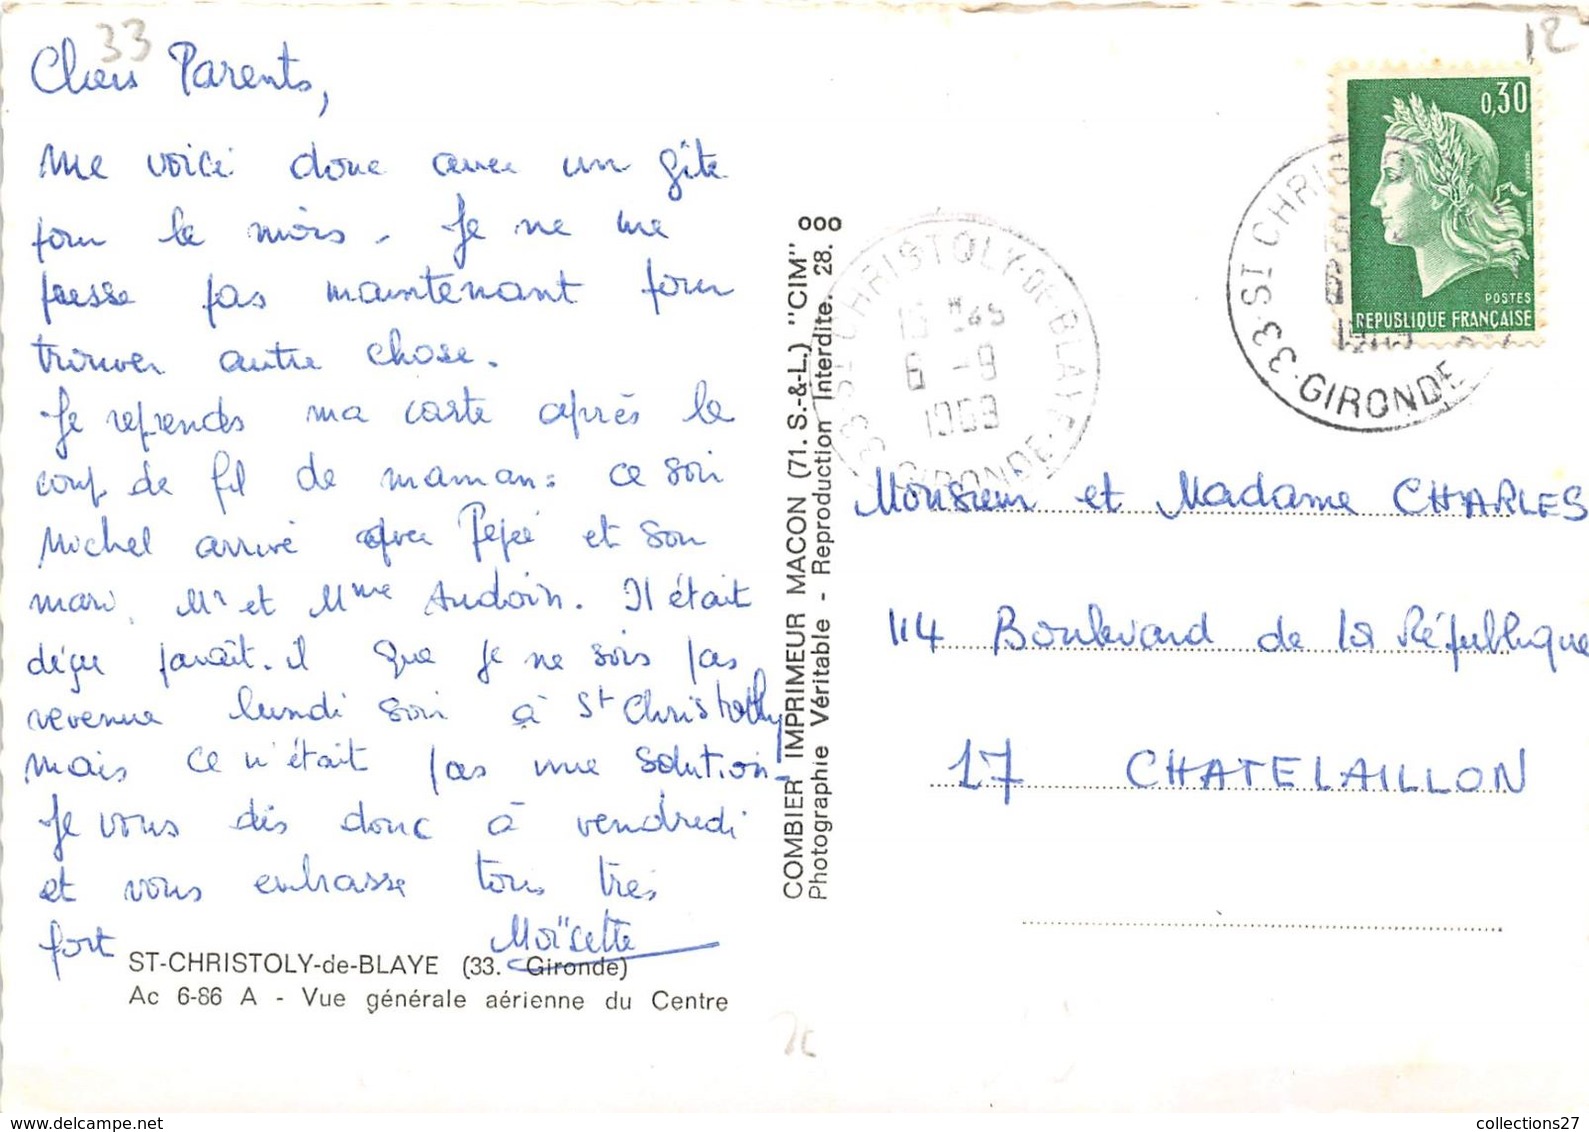 33
12
Chers Parents,
me voici donc avec un gîte
pour le mois - Je ne me
presse pas maintenant pour
trouver autre chose.
Je reprends ma carte après le
coup de fil de maman : ce soir
Michel arrive avec Pépé et son
mari, Mr et Mme Audoin. Il était
déçu paraît-il que je ne sois pas
revenue lundi soir à St Christolly
mais ce n'était pas une solution -
Je vous dis donc à vendredi
et vous embrasse tous très
fort
Moïsette
ST-CHRISTOLY-de-BLAYE (33. Gironde)
Ac 6-86 A - Vue générale aérienne du Centre
COMBIER IMPRIMEUR MACON (71. S.-&-L.) "CIM"
Photographie Véritable - Reproduction Interdite. 28. ooo
33-ST CHRISTOLY-DE-BLAYE
GIRONDE
6 -9
1969
0,30
POSTES
REPUBLIQUE FRANÇAISE
33-ST CHRIS
GIRONDE
Monsieur et Madame CHARLES
114 Boulevard de la République
17 CHATELAILLON
collections27